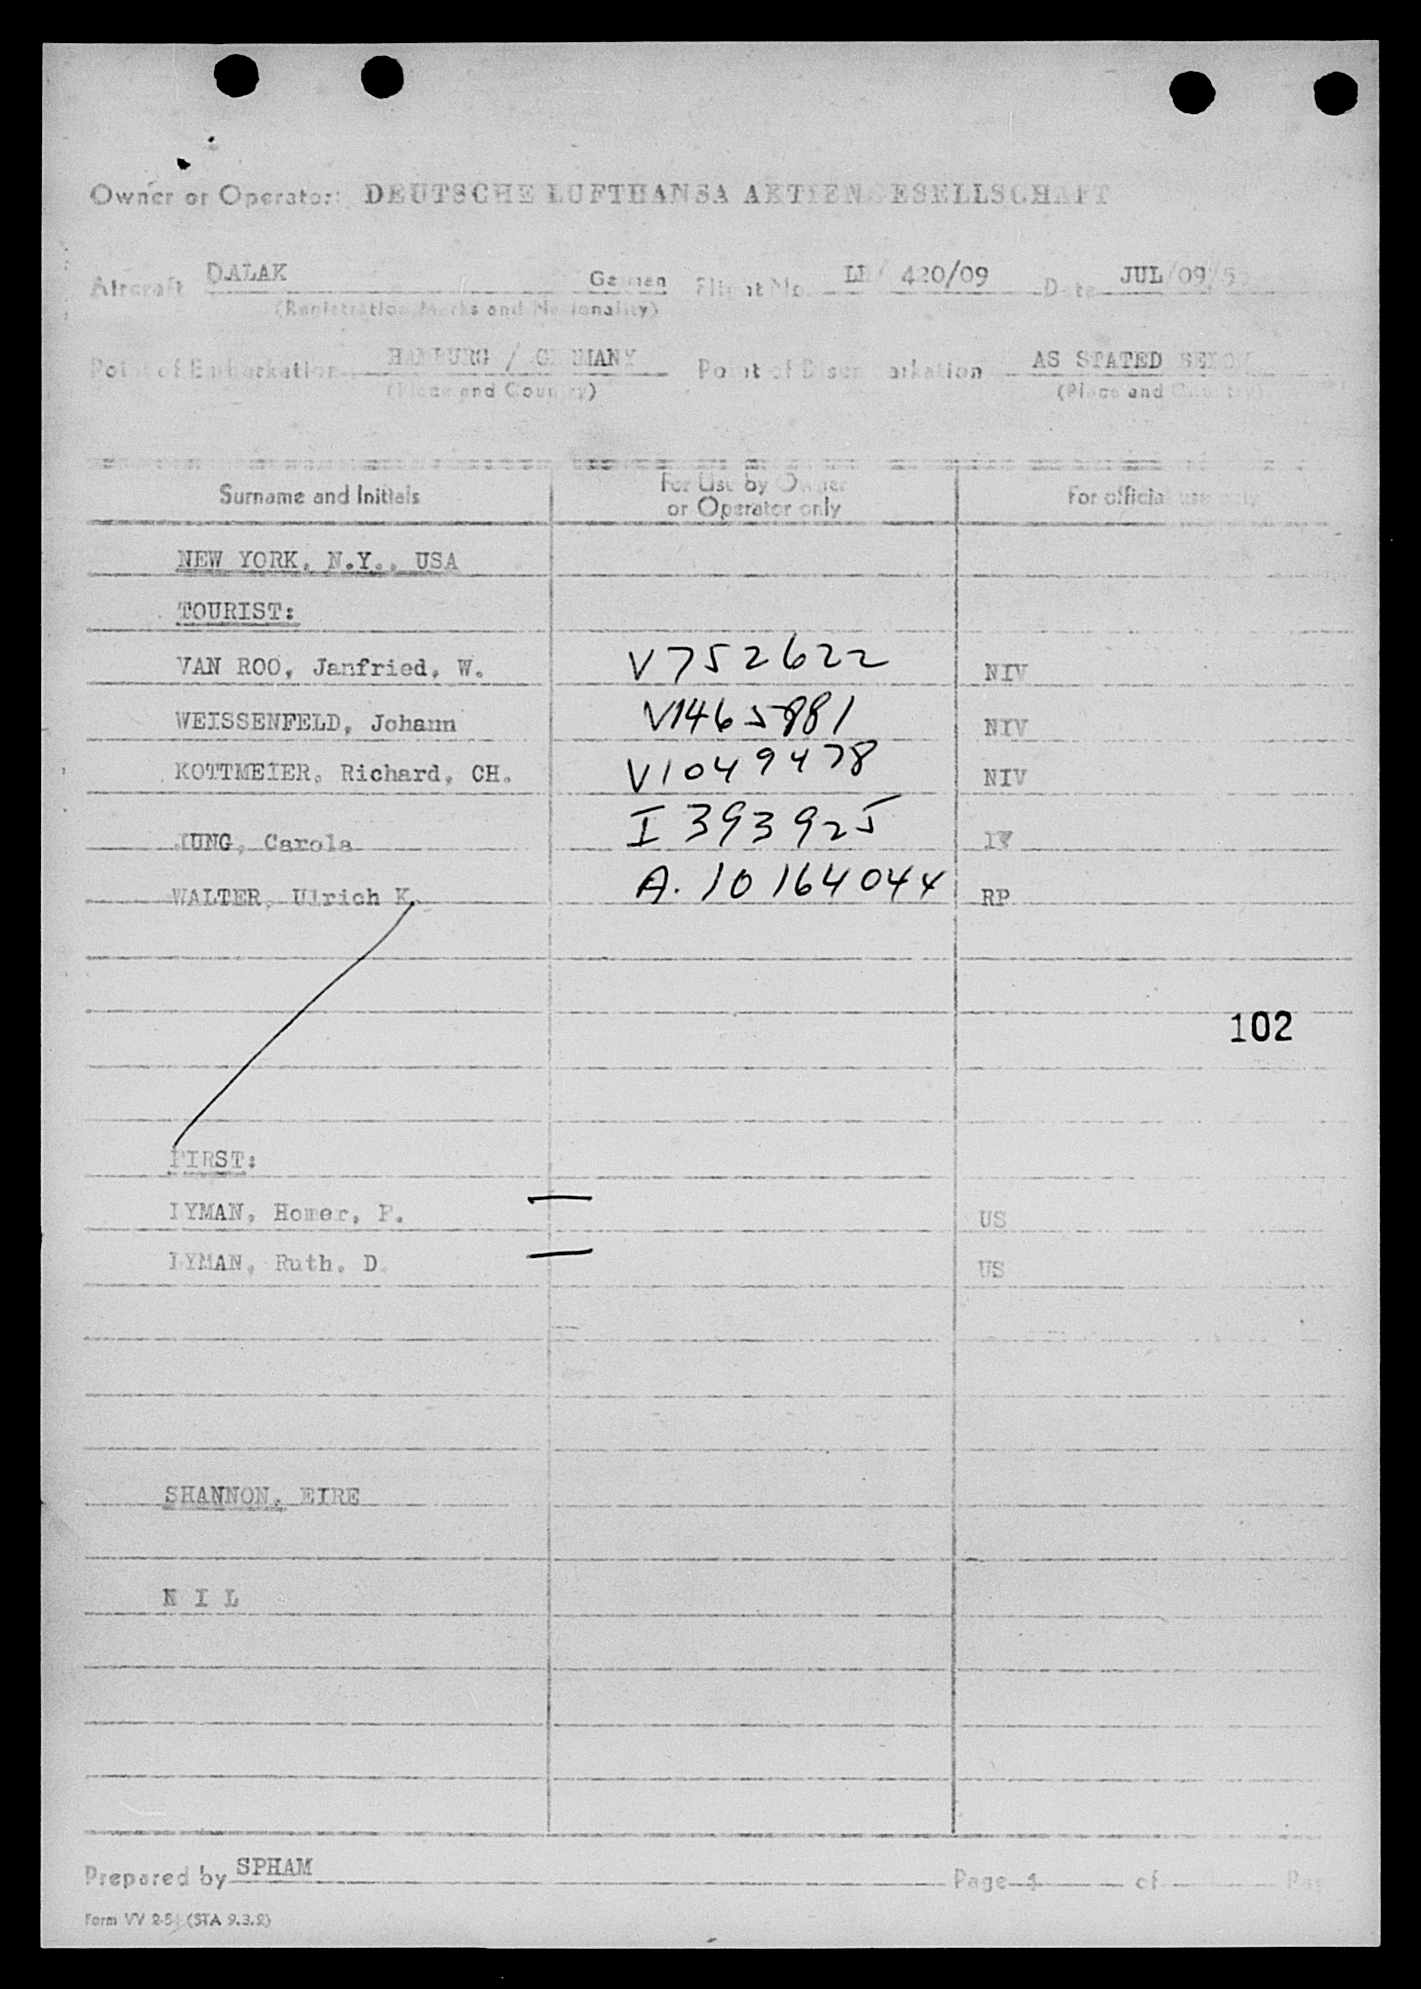 Owner or Operator: DEUTSCHE LUFTHANSA AKTIENGESELLSCHAFT
Aircraft DALAK German Flight No. LH/ 420/09 Date JUL/09/5
(Registration Marks and Nationality)
Point of Embarkation HAMBURG / GERMANY Point of Disembarkation AS STATED BELOW
(Place and Country) (Place and Country)
Surname and Initials For Use by Owner or Operator only For official use only
NEW YORK, N.Y., USA
TOURIST:
VAN ROO, Janfried, W. V752622 NIV
WEISSENFELD, Johann V1465881 NIV
KOTTMEIER, Richard, CH. V1049478 NIV
JUNG, Carola I 393925 IV
WALTER, Ulrich K. A. 10164044 RP
102
FIRST:
LYMAN, Homer, P. — US
LYMAN, Ruth. D. — US
SHANNON, EIRE
N I L
Prepared by SPHAM Page of
Form VV 2-5 (STA 9.3.2)